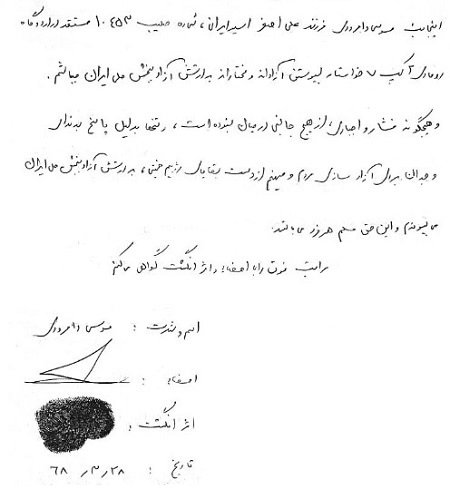 اینجانب موسی دامرودی فرزند علی اصغر اسیر ایرانی، شماره صلیب ۱۰۴۵۳ مستقر در اردوگاه
رومادی ۲ کمپ ۷ خواستار پیوستن آزادانه و مختارانه به ارتش آزادیبخش ملی ایران میباشم.
و هیچگونه فشار و اجباری، از هیچ جانبی در میان نبوده است، و تنها بدلیل پاسخ به ندای
وجدان برای آزاد سازی مردم و میهنم از دست بقایای رژیم خمینی، به ارتش آزادیبخش ملی ایران
می‌پیوندم و این حق مسلم هر فرد می‌باشد.
مراتب فوق را با امضاء و اثر انگشت گواهی میکنم
اسم و شهرت : موسی دامرودی
امضاء :
اثر انگشت :
تاریخ : ۶۸٫۳٫۲۸